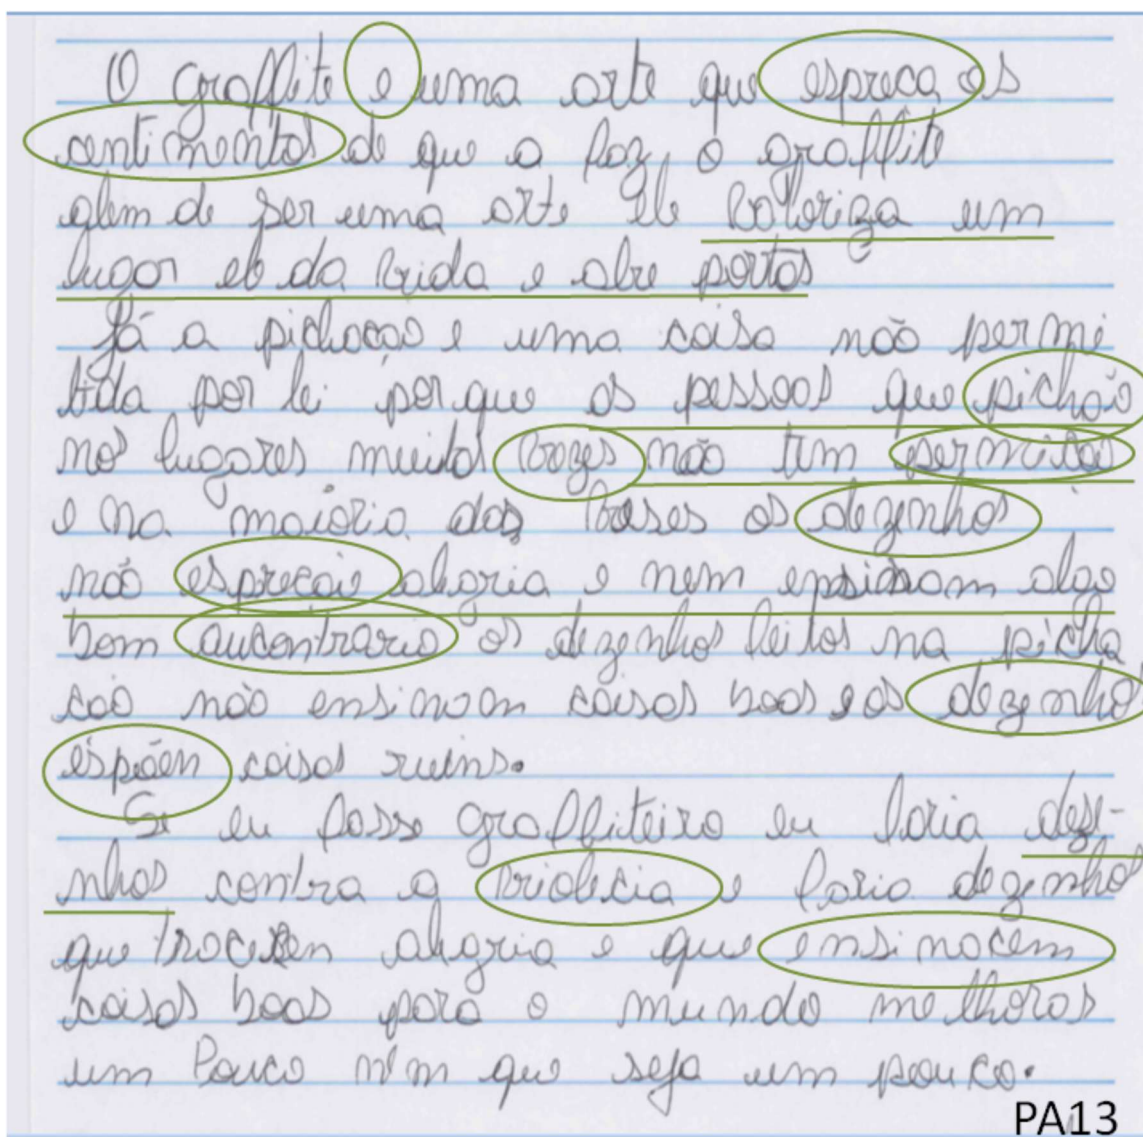 O graffite e uma arte que espreca os
centimentos de que a faz, o graffite
alem de ser uma arte ele valoriza um
lugar ele da vida e abre portas
Já a pichacao e uma coisa não permi
tida por lei porque as pessoas que pichão
nos lugares muitas vezes não tem permicão
e na maioria das vezes os dezenhos
não esprecão alegria e nem ensinam algo
bom aucontrario os dezenhos feitos na picha
cão não ensinam coisas boas e os dezenhos
espõen coisas ruins.
Se eu fosse graffiteiro eu faria dese-
nhos contra a violecia e faria dezenhos
que trocesen alegria e que ensinacem
coisas boas para o mundo melhoras
um pouco nem que seja um pouco.
PA13